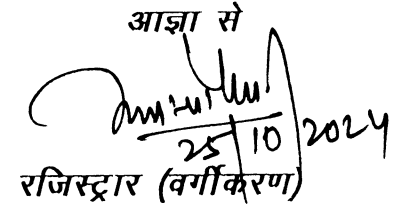 आज्ञा से
25/10/2024
रजिस्ट्रार (वर्गीकरण)